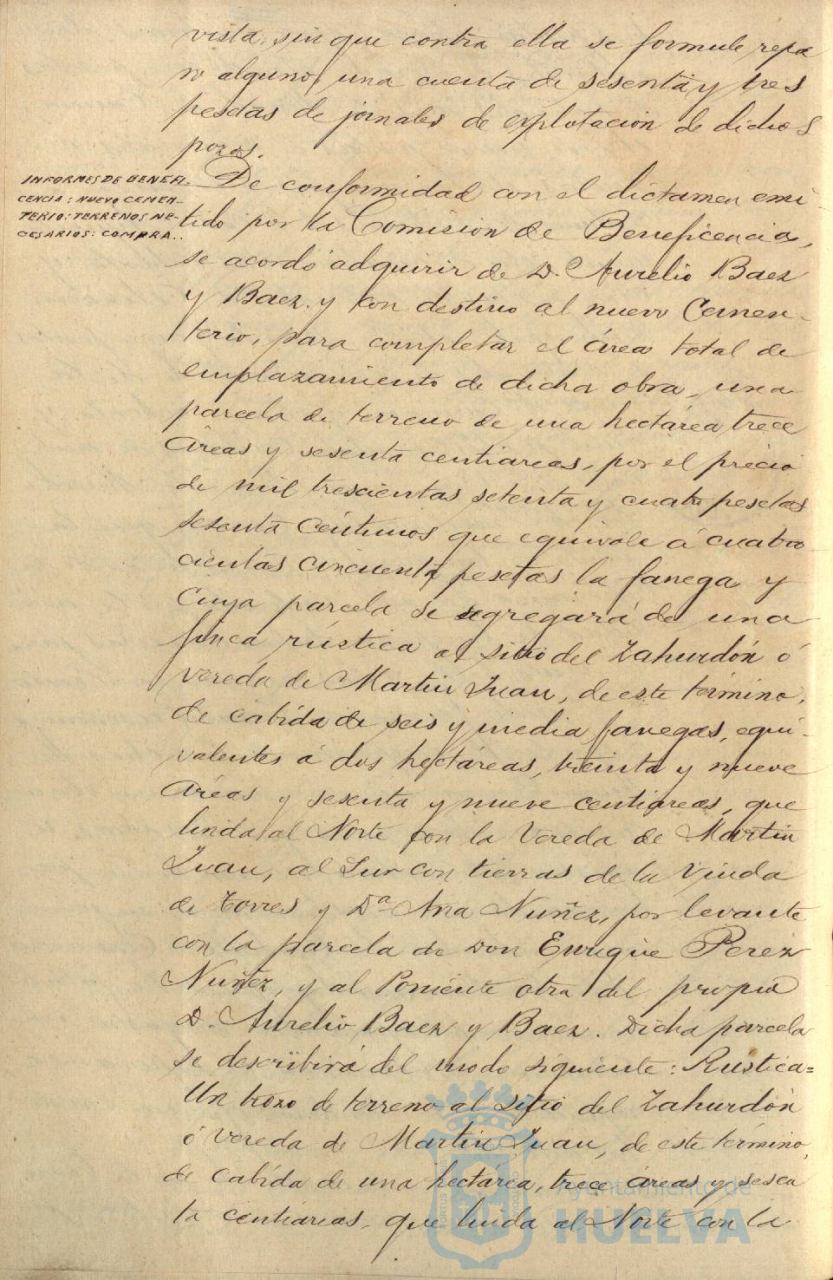 vista, sin que contra ella se formule repa
ro alguno, una cuenta de sesenta y tres
pesetas de jornales de explotacion de dichos
pozos.
INFORMES DE BENEFI-
CENCIA: NUEVO CEMEN-
TERIO: TERRENOS NE-
CESARIOS: COMPRA..
De conformidad con el dictamen emi
tido por la Comision de Beneficencia,
se acordó adquirir de D. Aurelio Baez
y Baez y con destino al nuevo Cemen-
terio, para completar el área total de
emplazamiento de dicha obra, una
parcela de terreno de una hectárea trece
áreas y sesenta centiareas, por el precio
de mil trescientas setenta y cuatro pesetas
sesenta céntimos que equivale á cuatro
cientas cincuenta pesetas la fanega y
cuya parcela se segregará de una
finca rústica al sitio del Zahurdón ó
vereda de Martin Juan, de este término,
de cabida de seis y media fanegas, equi-
valentes á dos hectáreas, treinta y nueve
áreas y sesenta y nueve centiareas, que
linda al Norte con la Vereda de Martin
Juan, al Sur con tierras de la Viuda
de Torres y Dª Ana Nuñez, por levante
con la parcela de Don Enrique Perez
Nuñez, y al Poniente otra del propio
D. Aurelio Baez y Baez. Dicha parcela
se describirá del modo siguiente: Rústica=
Un trozo de terreno al sitio del Zahurdón
ó vereda de Martin Juan, de este término,
de cabida de una hectárea, trece áreas y sesen
ta centiareas, que linda al Norte con la
Ayuntamiento de
HUELVA